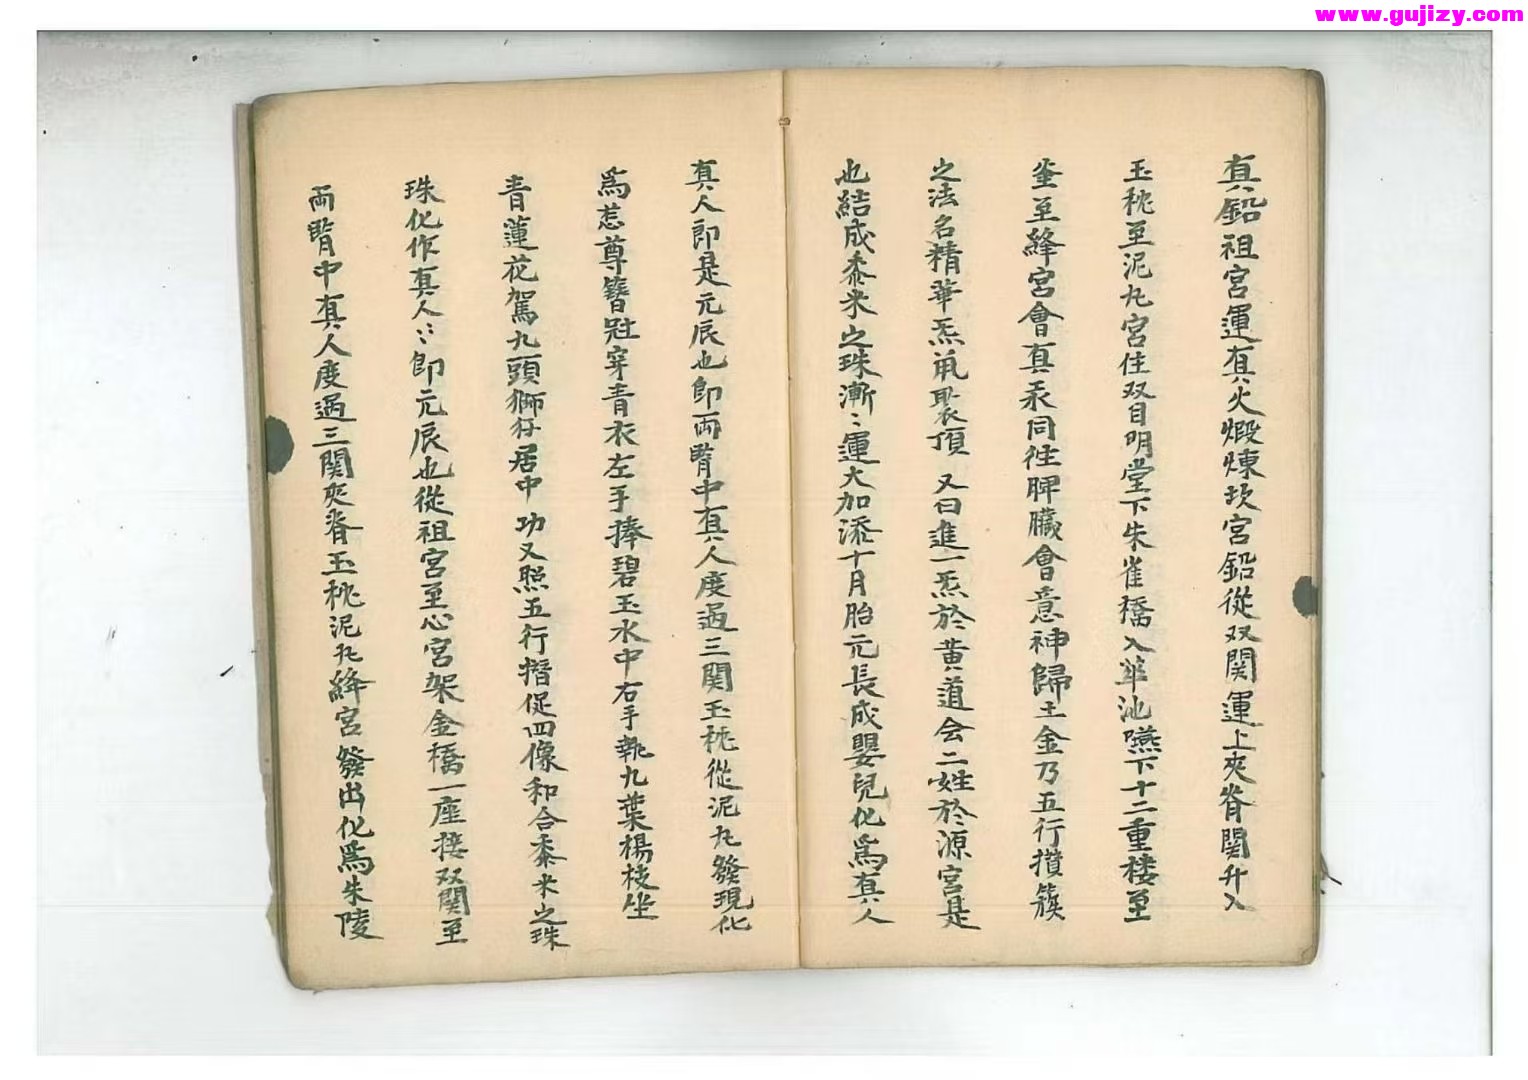 www.gujizy.com
真鉛祖宮運真火煅煉坎宮鉛從双関運上夾脊関升入
玉枕至泥丸宮住双目明堂下朱雀橋入華池嚥下十二重楼至
至絳宮會真汞同徃脾臟會意神歸土金乃五行攅簇
之法名精華炁朝聚頂又曰進一炁於黄道会二姓於源宮是
也結成黍米之珠漸〻運大加添十月胎元長成嬰兒化為真人
真人即是元辰也即両腎中真人度過三関玉枕從泥丸發現化
為惹尊簪冠穿青衣左手捧碧玉水中右手執九葉楊枝坐
青蓮花駕九頭獅仔居中功又照五行揩促四像和合黍米之珠
珠化作真人〻即元辰也從祖宮至心宮架金橋一座接双関至
両腎中真人度過三関夾脊玉枕泥丸絳宮發出化為朱陵